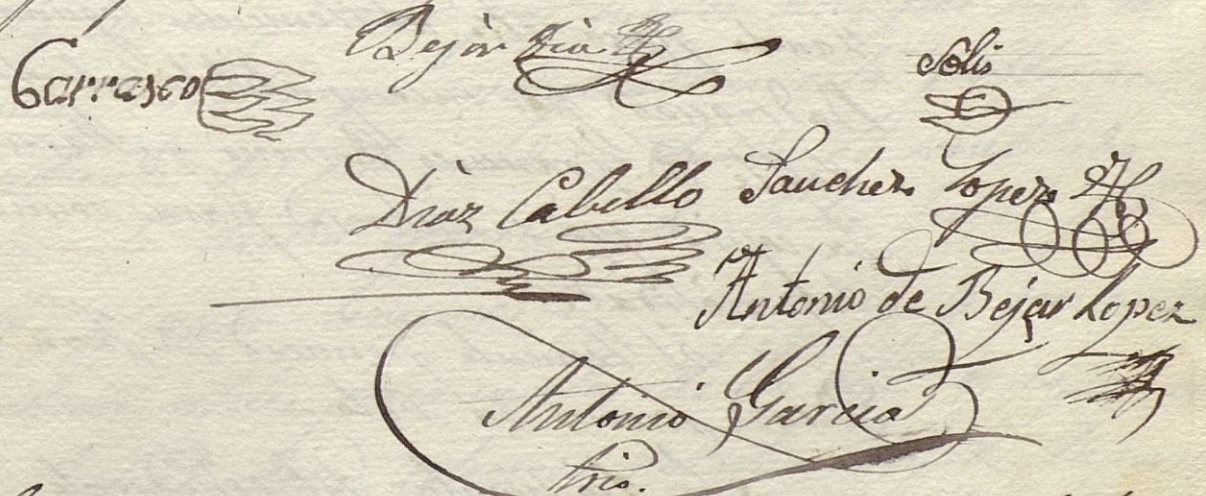 Carrasco Bejar Solis
Diaz Cabello Sanchez Lopez
Antonio de Bejar Lopez
Antonio Garcia
Srio.